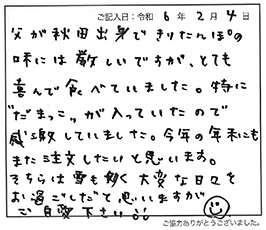 ご記入日：令和 6 年 2 月 4 日
父が秋田出身できりたんぽの
味には厳しいですが、とても
喜んで食べていました。特に
"だまっこ"が入っていたので
感激していました。今年の年末にも
また注文したいと思います。
そちらは雪も多く大変な日々を
お過ごしだと思いますが
ご自愛下さい!!
ご協力ありがとうございました。